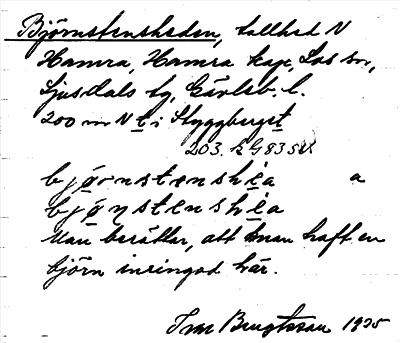 Björnstensheden, tallhed N
Hamra, Hamra kap, Los sn,
Ljusdals tg, Gävleb. l.
200 m N t i Styggberget
203.
björnstenshea a
bjønstenshea
Man berättar, att man haft en
björn inringad här.
Ivar Bengtsson 1935